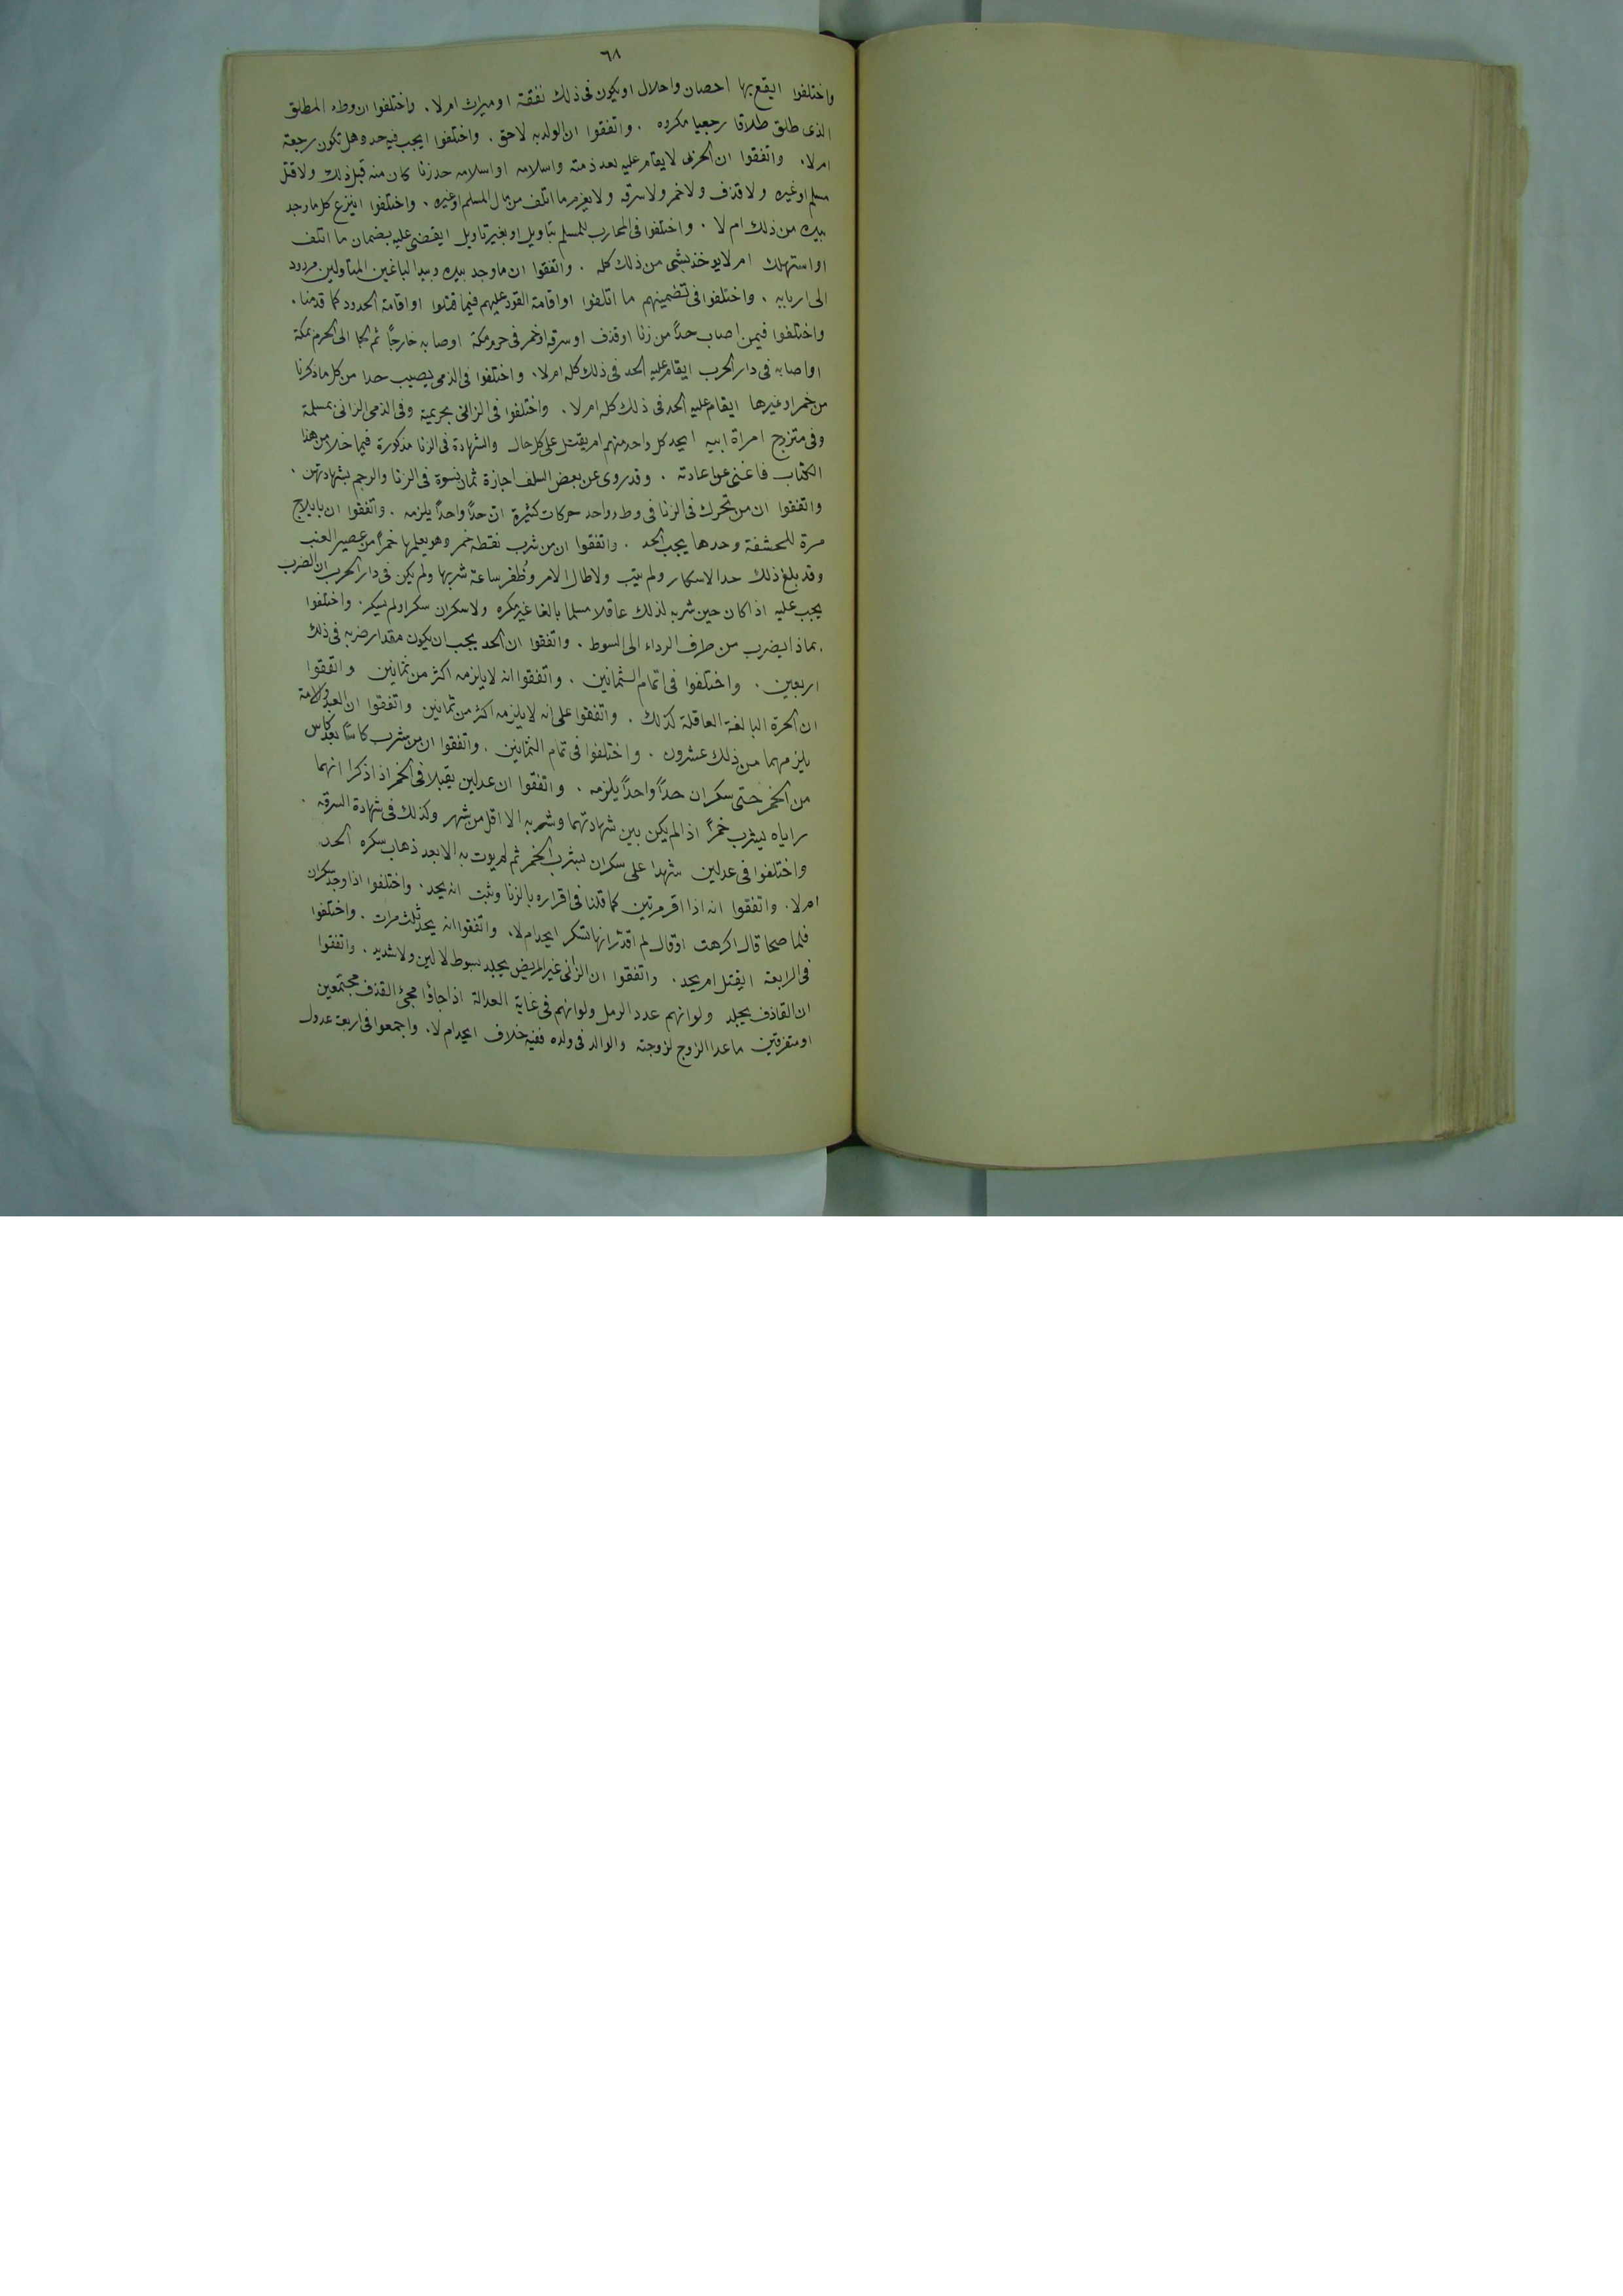 ٦٨
واختلفوا ايقع بها احصان واحلال او يكون فى ذلك نفقة او ميراث ام لا . واختلفوا ان وطء المطلق
الذى طلق طلاقا رجعيا مكروه . واتفقوا ان الولد به لاحق . واختلفوا ايجب فيه حد وهل تكون رجعة
ام لا . واتفقوا ان الحربى لا يقام عليه بعد ذمته واسلامه او اسلامه حد زنا كان منه قبل ذلك ولا قتل
مسلم او غيره ولا قذف ولا خمر ولا سرقه ولا يغرم ما اتلف من مال المسلم او غيره . واختلفوا اينزع كل ما وجد
بيده من ذلك ام لا . واختلفوا فى المحارب للمسلم بتاويل او بغير تاويل ايقضى عليه بضمان ما اتلف
او استهلك ام لا يوخذ بشى من ذلك كله . واتفقوا ان ما وجد بيده وبيد الباغين المتاولين مردود
الى اربابه . واختلفوا فى تضمينهم ما اتلفوا او اقامة القود عليهم فيما قتلوا او اقامة الحدود كما قدمنا .
واختلفوا فيمن اصاب حداً من زنا او قذف او سرقه او خمر فى حرم مكة او صابه خارجاً ثم لجا الى الحرم بمكة
او اصابه فى دار الحرب ايقام عليه الحد فى ذلك كله ام لا . واختلفوا فى الذمى يصيب حدا من كل ما ذكرنا
من خمر او غيرها ايقام عليه الحد فى ذلك كله ام لا . واختلفوا فى الزانى بحريمة وفى الذمى الزانى بمسلمة
وفى متزوج امراة ابيه ايحد كل واحد منهم ام يقتل على كل حال والشهادة فى الزنا مذكورة فيما خلا من هذا
الكتاب فاغنى عن اعادته . وقد روى عن بعض السلف اجازة ثمان نسوة فى الزنا والرجم بشهادتهن .
واتفقوا ان من تحرك فى الزنا فى وطء واحد حركات كثيرة ان حداً واحداً يلزمه . واتفقوا ان بايلاج
مرة للحشفة وحدها يجب الحد . واتفقوا ان من شرب نقطه خمر وهو يعلمها خمراً من عصير العنب
وقد بلغ ذلك حد الاسكار ولم يتب ولا طال الامر وظُفر ساعة شربها ولم يكن فى دار الحرب ان الضرب
يجب عليه اذا كان حين شربه لذلك عاقلا مسلما بالغا غير مكره ولا سكران سكر او لم يسكر . واختلفوا
بماذا يضرب من طرف الرداء الى السوط . واتفقوا ان الحد يجب ان يكون مقدار ضربه فى ذلك
اربعين . واختلفوا فى اتمام الثمانين . واتفقوا انه لا يلزمه اكثر من ثمانين واتفقوا
ان الحرة البالغة العاقلة كذلك . واتفقوا على انه لا يلزمه اكثر من ثمانين واتفقوا ان العبد والامة
يلزمهما من ذلك عشرون . واختلفوا فى تمام الثمانين . واتفقوا ان من شرب كاساً بعد كاس
من الخمر حتى سكر ان حداً واحداً يلزمه . واتفقوا ان عدلين يقبلا فى الخمر اذا ذكرا انهما
راياه يشرب خمراً اذا لم يكن بين شهادتهما وشربه الا اقل من شهر وكذلك فى شهادة السرقه .
واختلفوا فى عدلين شهدا على سكران بشرب الخمر ثم لم يوت به الا بعد ذهاب سكره الحد
ام لا . واتفقوا انه اذا اقر مرتين كما قلنا فى اقراره بالزنا وثبت انه يحد . واختلفوا اذا وجد سكران
فلما صحا قال اكرهت او قال لم اقدر انها تسكر ايحد ام لا . واتفقوا انه يحد ثلث مرات . واختلفوا
فى الرابعة ايقتل ام يحد . واتفقوا ان الزانى غير المريض يجلد بسوط لا لين ولا شديد . واتفقوا
ان القاذف يجلد ولو انهم عدد الرمل ولو انهم فى غاية العدالة اذا جاؤا مجئ القذف مجتمعين
او متفرقين ما عدا الزوج لزوجته والوالد فى ولده ففيه خلاف ايحد ام لا . واجمعوا فى اربعة عدول